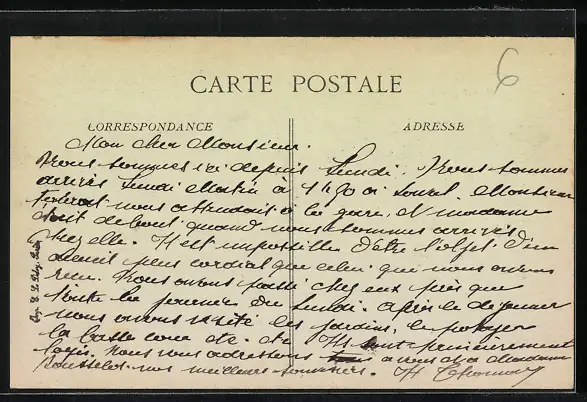 6
CARTE POSTALE
CORRESPONDANCE
ADRESSE
Mon cher Monsieur.
Nous sommes ici depuis Lundi. Nous sommes
arrivés Lundi Matin à 11h30 à Monsieur
nous attendait à la gare, et madame
était debout quand nous sommes arrivés
chez elle. Il est impossible d'être l'objet d'un
accueil plus cordial que celui que nous avons
reçu. Nous avons passé chez eux près que
toute la journée du Lundi. Après le déjeuner
nous avons visité les jardins, le potager
la basse cour etc. etc. Ils sont
logés. Nous vous adressons à vous et à Madame
Rousselet nos meilleurs souvenirs. H